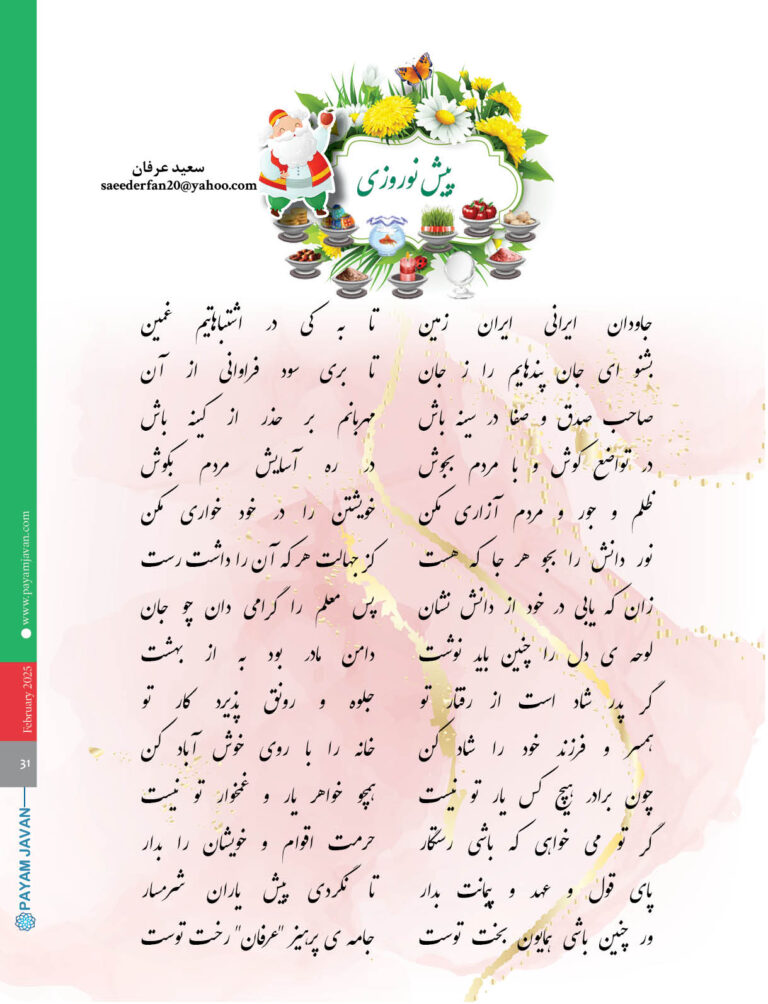 سعید عرفان
saeederfan20@yahoo.com
پیش نوروزی
جاودان ایرانی ایران زمین تا به کی در اشتباهاتیم غمین
بشنو ای جان پندهایم را ز جان تا بری سود فراوانی از آن
صاحب صدق و صفا در سینه باش مهربانم بر حذر از کینه باش
در تواضع کوش و با مردم بجوش در ره آسایش مردم بکوش
ظلم و جور و مردم آزاری مکن خویشتن را در خود خواری مکن
نور دانش را بجو هر جا که هست کز جهالت هر که آن را داشت رست
زان که یابی در خود از دانش نشان پس معلم را گرامی دان چو جان
لوحه ی دل را چنین باید نوشت دامن مادر بود به از بهشت
گر پدر شاد است از رفتار تو جلوه و رونق پذیرد کار تو
همسر و فرزند خود را شاد کن خانه را با روی خوش آباد کن
چون برادر هیچ کس یار تو نیست همچو خواهر یار و غمخوار تو نیست
گر تو می خواهی که باشی رستگار حرمت اقوام و خویشان را بدار
پای قول و عهد و پیمانت بدار تا نگردی پیش یاران شرمسار
ور چنین باشی همایون بخت توست جامه ی پرهیز "عرفان" رخت توست
www.payamjavan.com
February 2025
31
PAYAM JAVAN